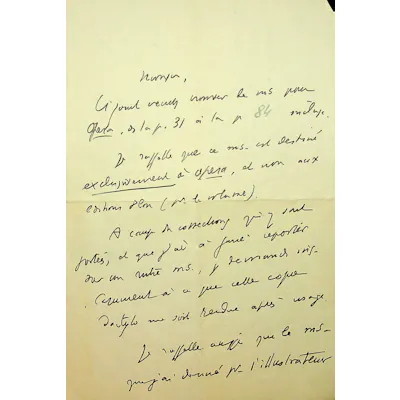 Monsieur,
Ci-joint veuillez trouver le ms pour
Opera, de la p. 31 à la p 84 incluse.
Je rappelle que ce ms. est destiné
exclusivement à Opera, et non aux
editions Plon (pr le volume).
A cause des corrections qu'y sont
portées, et que j'ai à faire reporter
sur un autre ms., je demande
à ce que cette copie
dactylo me soit rendue après usage.
Je rappelle aussi que le ms-
que j'ai donné pr l'illustrateur